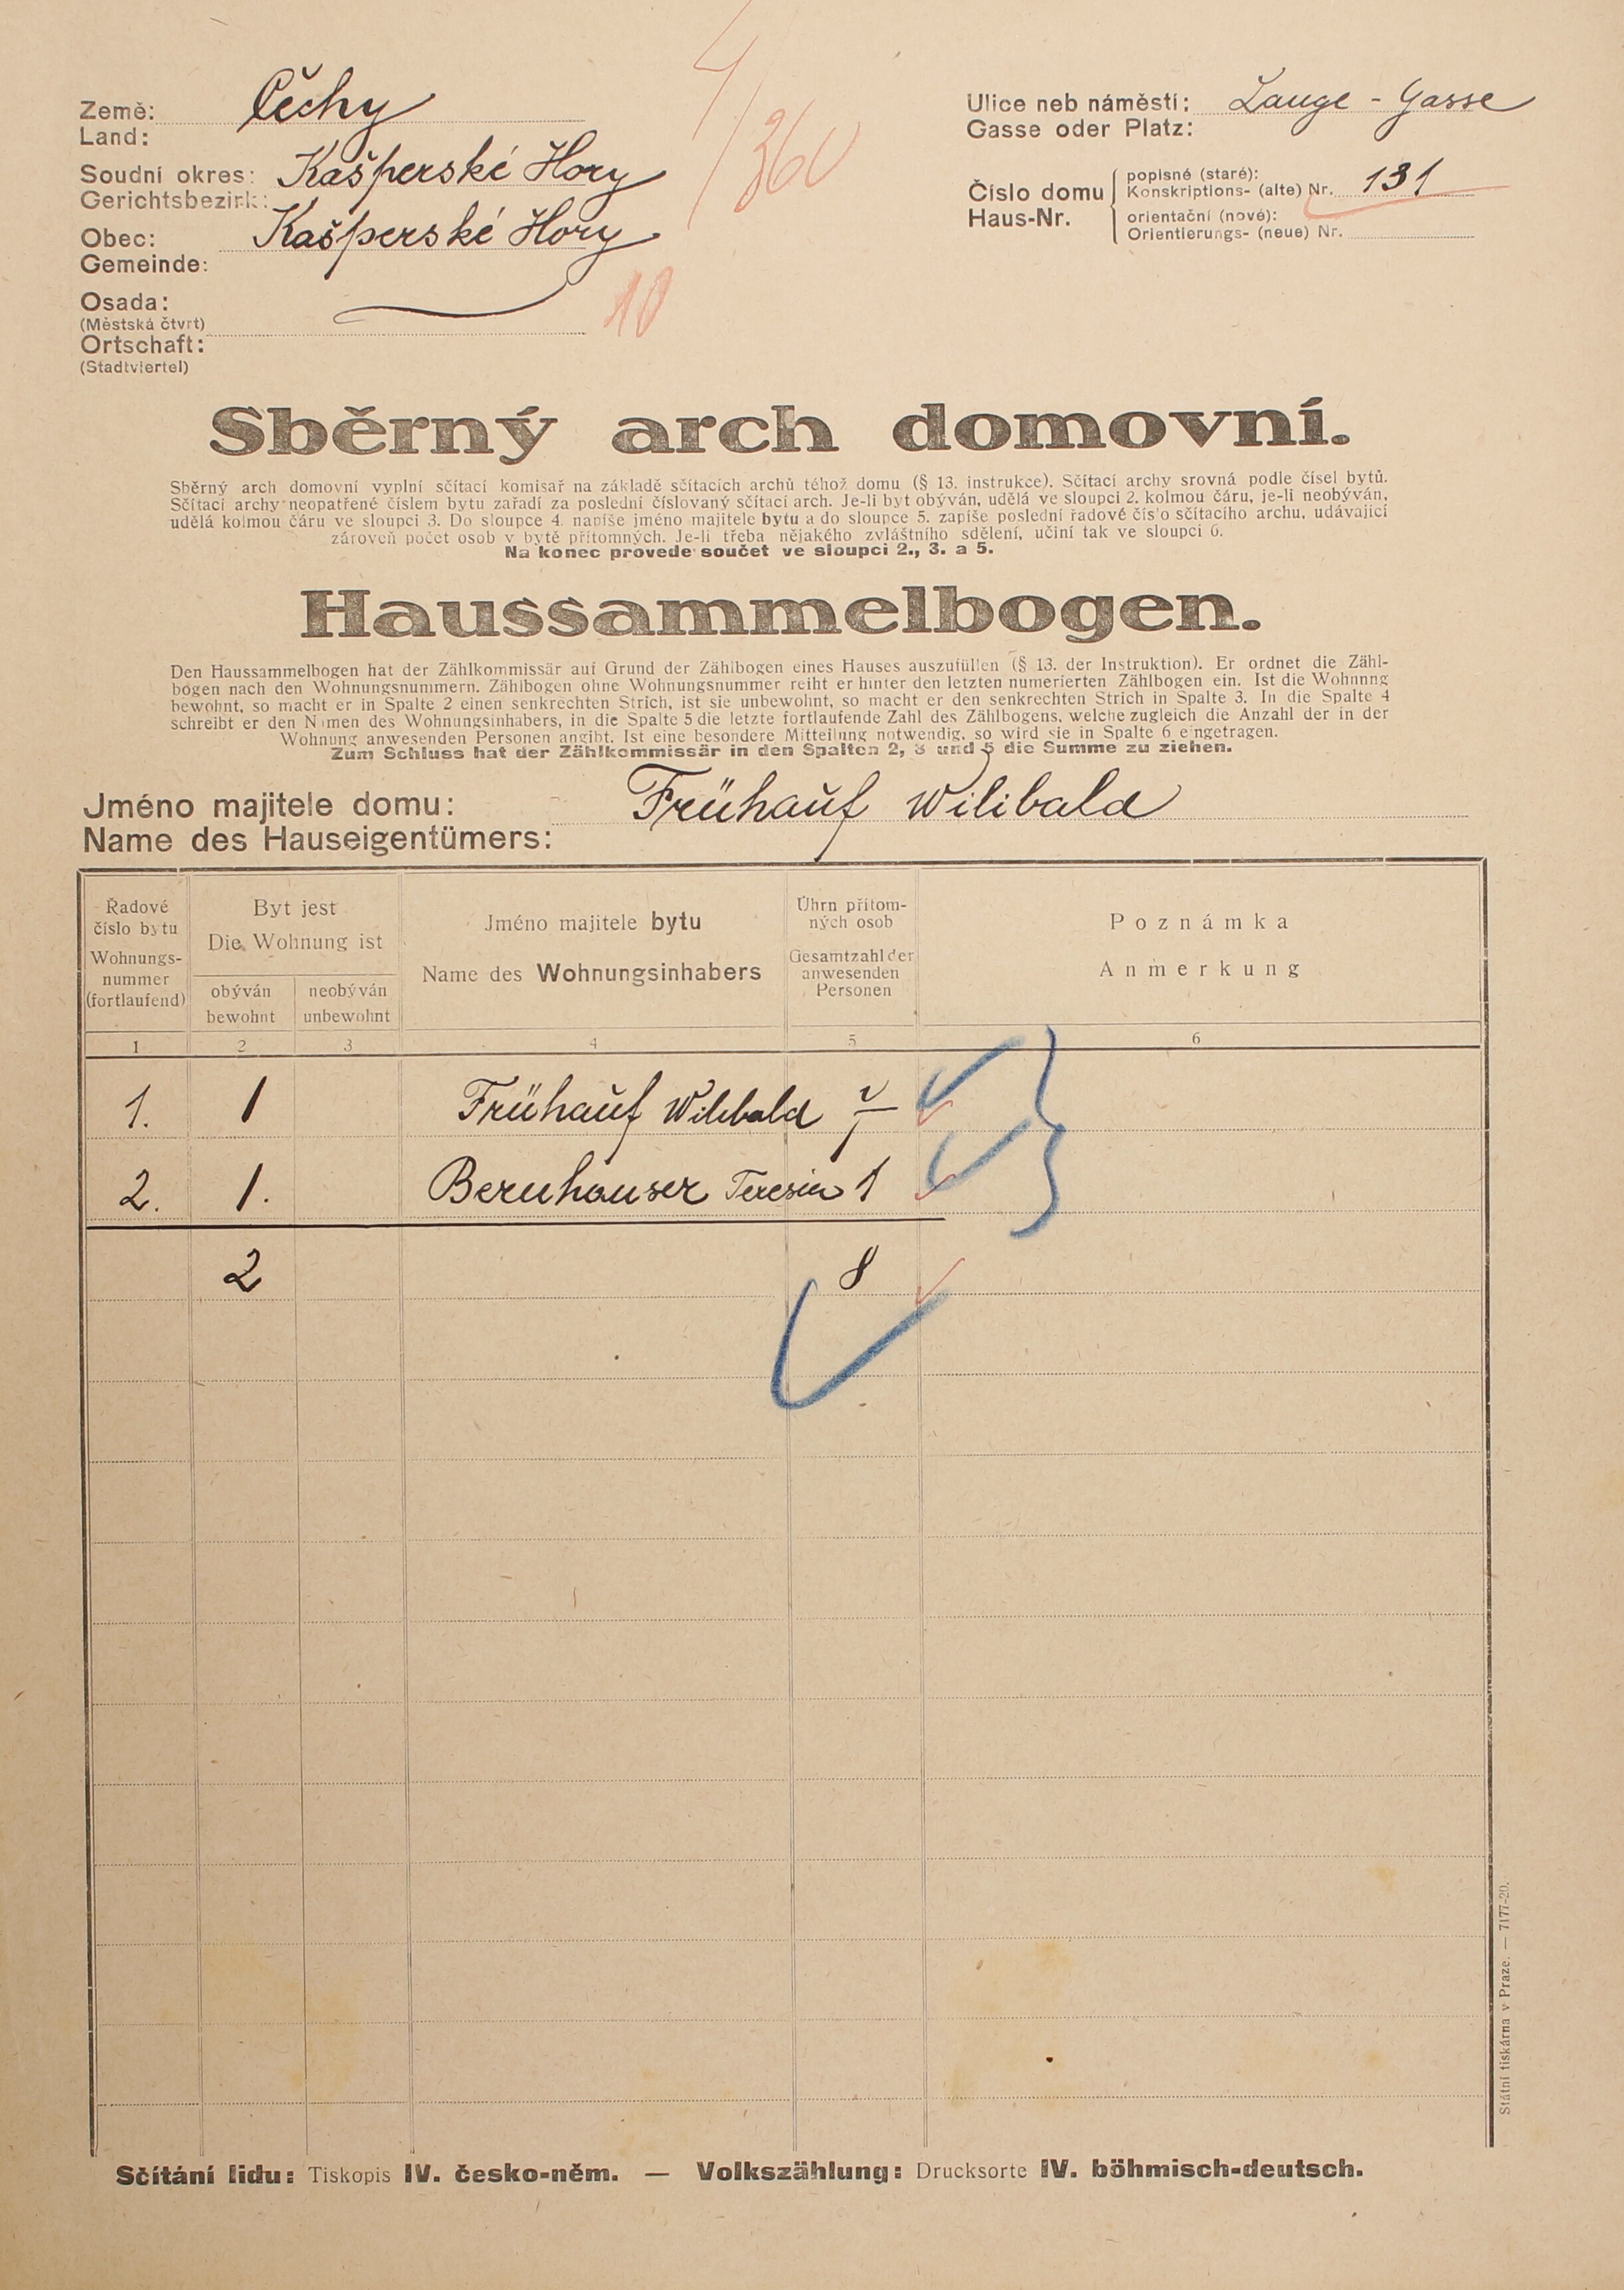 Země: Čechy
Land:
Soudní okres: Kašperské Hory
Gerichtsbezirk:
Obec: Kašperské Hory
Gemeinde:
Osada:
(Městská čtvrt)
Ortschaft:
(Stadtviertel)
4/360
10
Ulice neb náměstí: Lange - Gasse
Gasse oder Platz:
Číslo domu
Haus-Nr.
popisné (staré):
Konskriptions- (alte) Nr. 131
orientační (nové):
Orientierungs- (neue) Nr.
Sběrný arch domovní.
Sběrný arch domovní vyplní sčítací komisař na základě sčítacích archů téhož domu (§ 13. instrukce). Sčítací archy srovná podle čísel bytů.
Sčítací archy neopatřené číslem bytu zařadí za poslední číslovaný sčítací arch. Je-li byt obýván, udělá ve sloupci 2. kolmou čáru, je-li neobýván,
udělá kolmou čáru ve sloupci 3. Do sloupce 4. napíše jméno majitele bytu a do sloupce 5. zapíše poslední řadové číslo sčítacího archu, udávající
zároveň počet osob v bytě přítomných. Je-li třeba nějakého zvláštního sdělení, učiní tak ve sloupci 6.
Na konec provede součet ve sloupci 2., 3. a 5.
Haussammelbogen.
Den Haussammelbogen hat der Zählkommissär auf Grund der Zählbogen eines Hauses auszufüllen (§ 13. der Instruktion). Er ordnet die Zähl-
bogen nach den Wohnungsnummern. Zählbogen ohne Wohnungsnummer reiht er hinter den letzten numerierten Zählbogen ein. Ist die Wohnung
bewohnt, so macht er in Spalte 2 einen senkrechten Strich, ist sie unbewohnt, so macht er den senkrechten Strich in Spalte 3. In die Spalte 4
schreibt er den Namen des Wohnungsinhabers, in die Spalte 5 die letzte fortlaufende Zahl des Zählbogens, welche zugleich die Anzahl der in der
Wohnung anwesenden Personen angibt. Ist eine besondere Mitteilung notwendig, so wird sie in Spalte 6 eingetragen.
Zum Schluss hat der Zählkommissär in den Spalten 2, 3 und 5 die Summe zu ziehen.
Jméno majitele domu: Frühauf Wilibald
Name des Hauseigentümers:
Řadové číslo bytu
Wohnungs-nummer (fortlaufend)
Byt jest
Die Wohnung ist
obýván
bewohnt
neobýván
unbewohnt
Jméno majitele bytu
Name des Wohnungsinhabers
Úhrn přítom-ných osob
Gesamtzahl der anwesenden Personen
Poznámka
Anmerkung
1 2 3 4 5 6
1. 1 Frühauf Wilibald 7
2. 1. Bernhauser Teresia 1
2 8
Státní tiskárna v Praze. — 7177-20.
Sčítání lidu: Tiskopis IV. česko-něm. — Volkszählung: Drucksorte IV. böhmisch-deutsch.